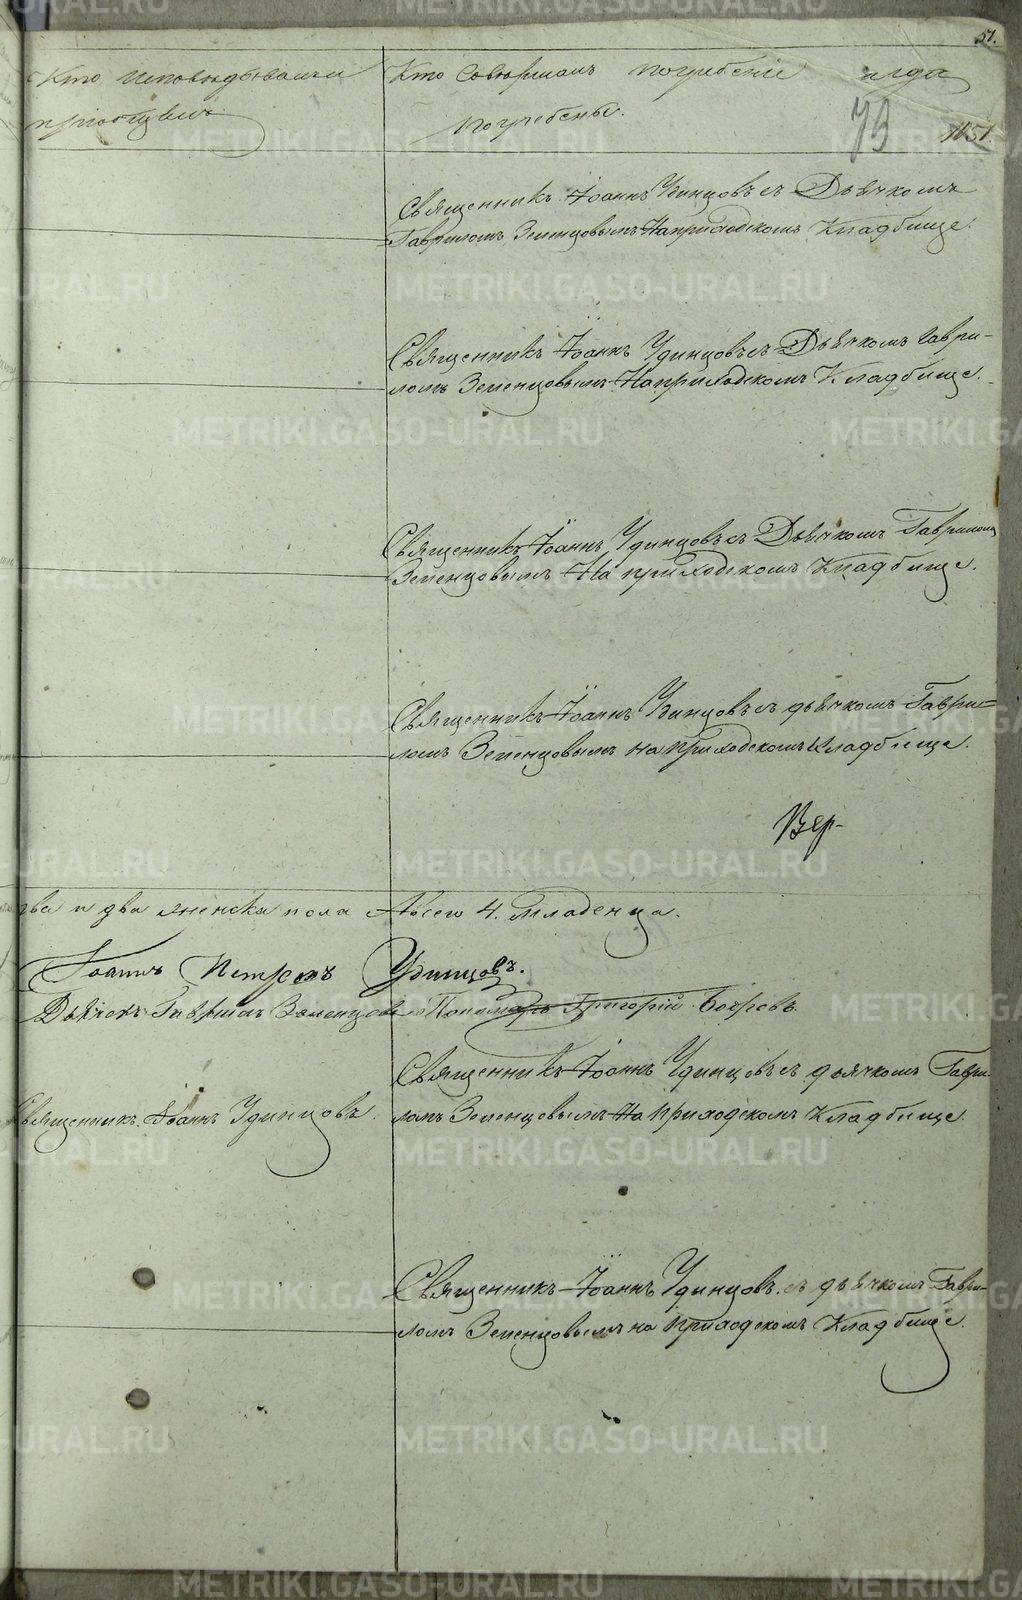 51.
Кто исповѣдывалъ и
пріобщалъ
Кто совершалъ погребеніе и гдѣ
погребены.
79
1051.
Священникъ Іоаннъ Удинцовъ съ Дьячкомъ
Гавриломъ Зеленцовымъ На приходскомъ Кладбище.
Священникъ Іоаннъ Удинцовъ съ Дьячкомъ Гаври-
ломъ Зеленцовымъ На приходскомъ Кладбище.
Священникъ Іоаннъ Удинцовъ съ Дьячкомъ Гавриломъ
Зеленцовымъ На приходскомъ Кладбище.
Священникъ Іоаннъ Удинцовъ съ дьячкомъ Гаври=
ломъ Зеленцовымъ на приходскомъ Кладбище.
Вер-
два и два женска пола А всего 4. младенца.
Іоаннъ Петровъ Удинцовъ.
Дьячокъ Гаврилъ Зеленцовъ Пономарь Григорій Бобровъ.
Священникъ Іоаннъ Удинцовъ.
Священникъ Іоаннъ Удинцовъ съ дьячкомъ Гаври-
ломъ Зеленцовымъ На приходскомъ Кладбище.
Священникъ Іоаннъ Удинцовъ съ дьячкомъ Гаври-
ломъ Зеленцовымъ на приходскомъ Кладбище.
METRIKI.GASO-URAL.RU